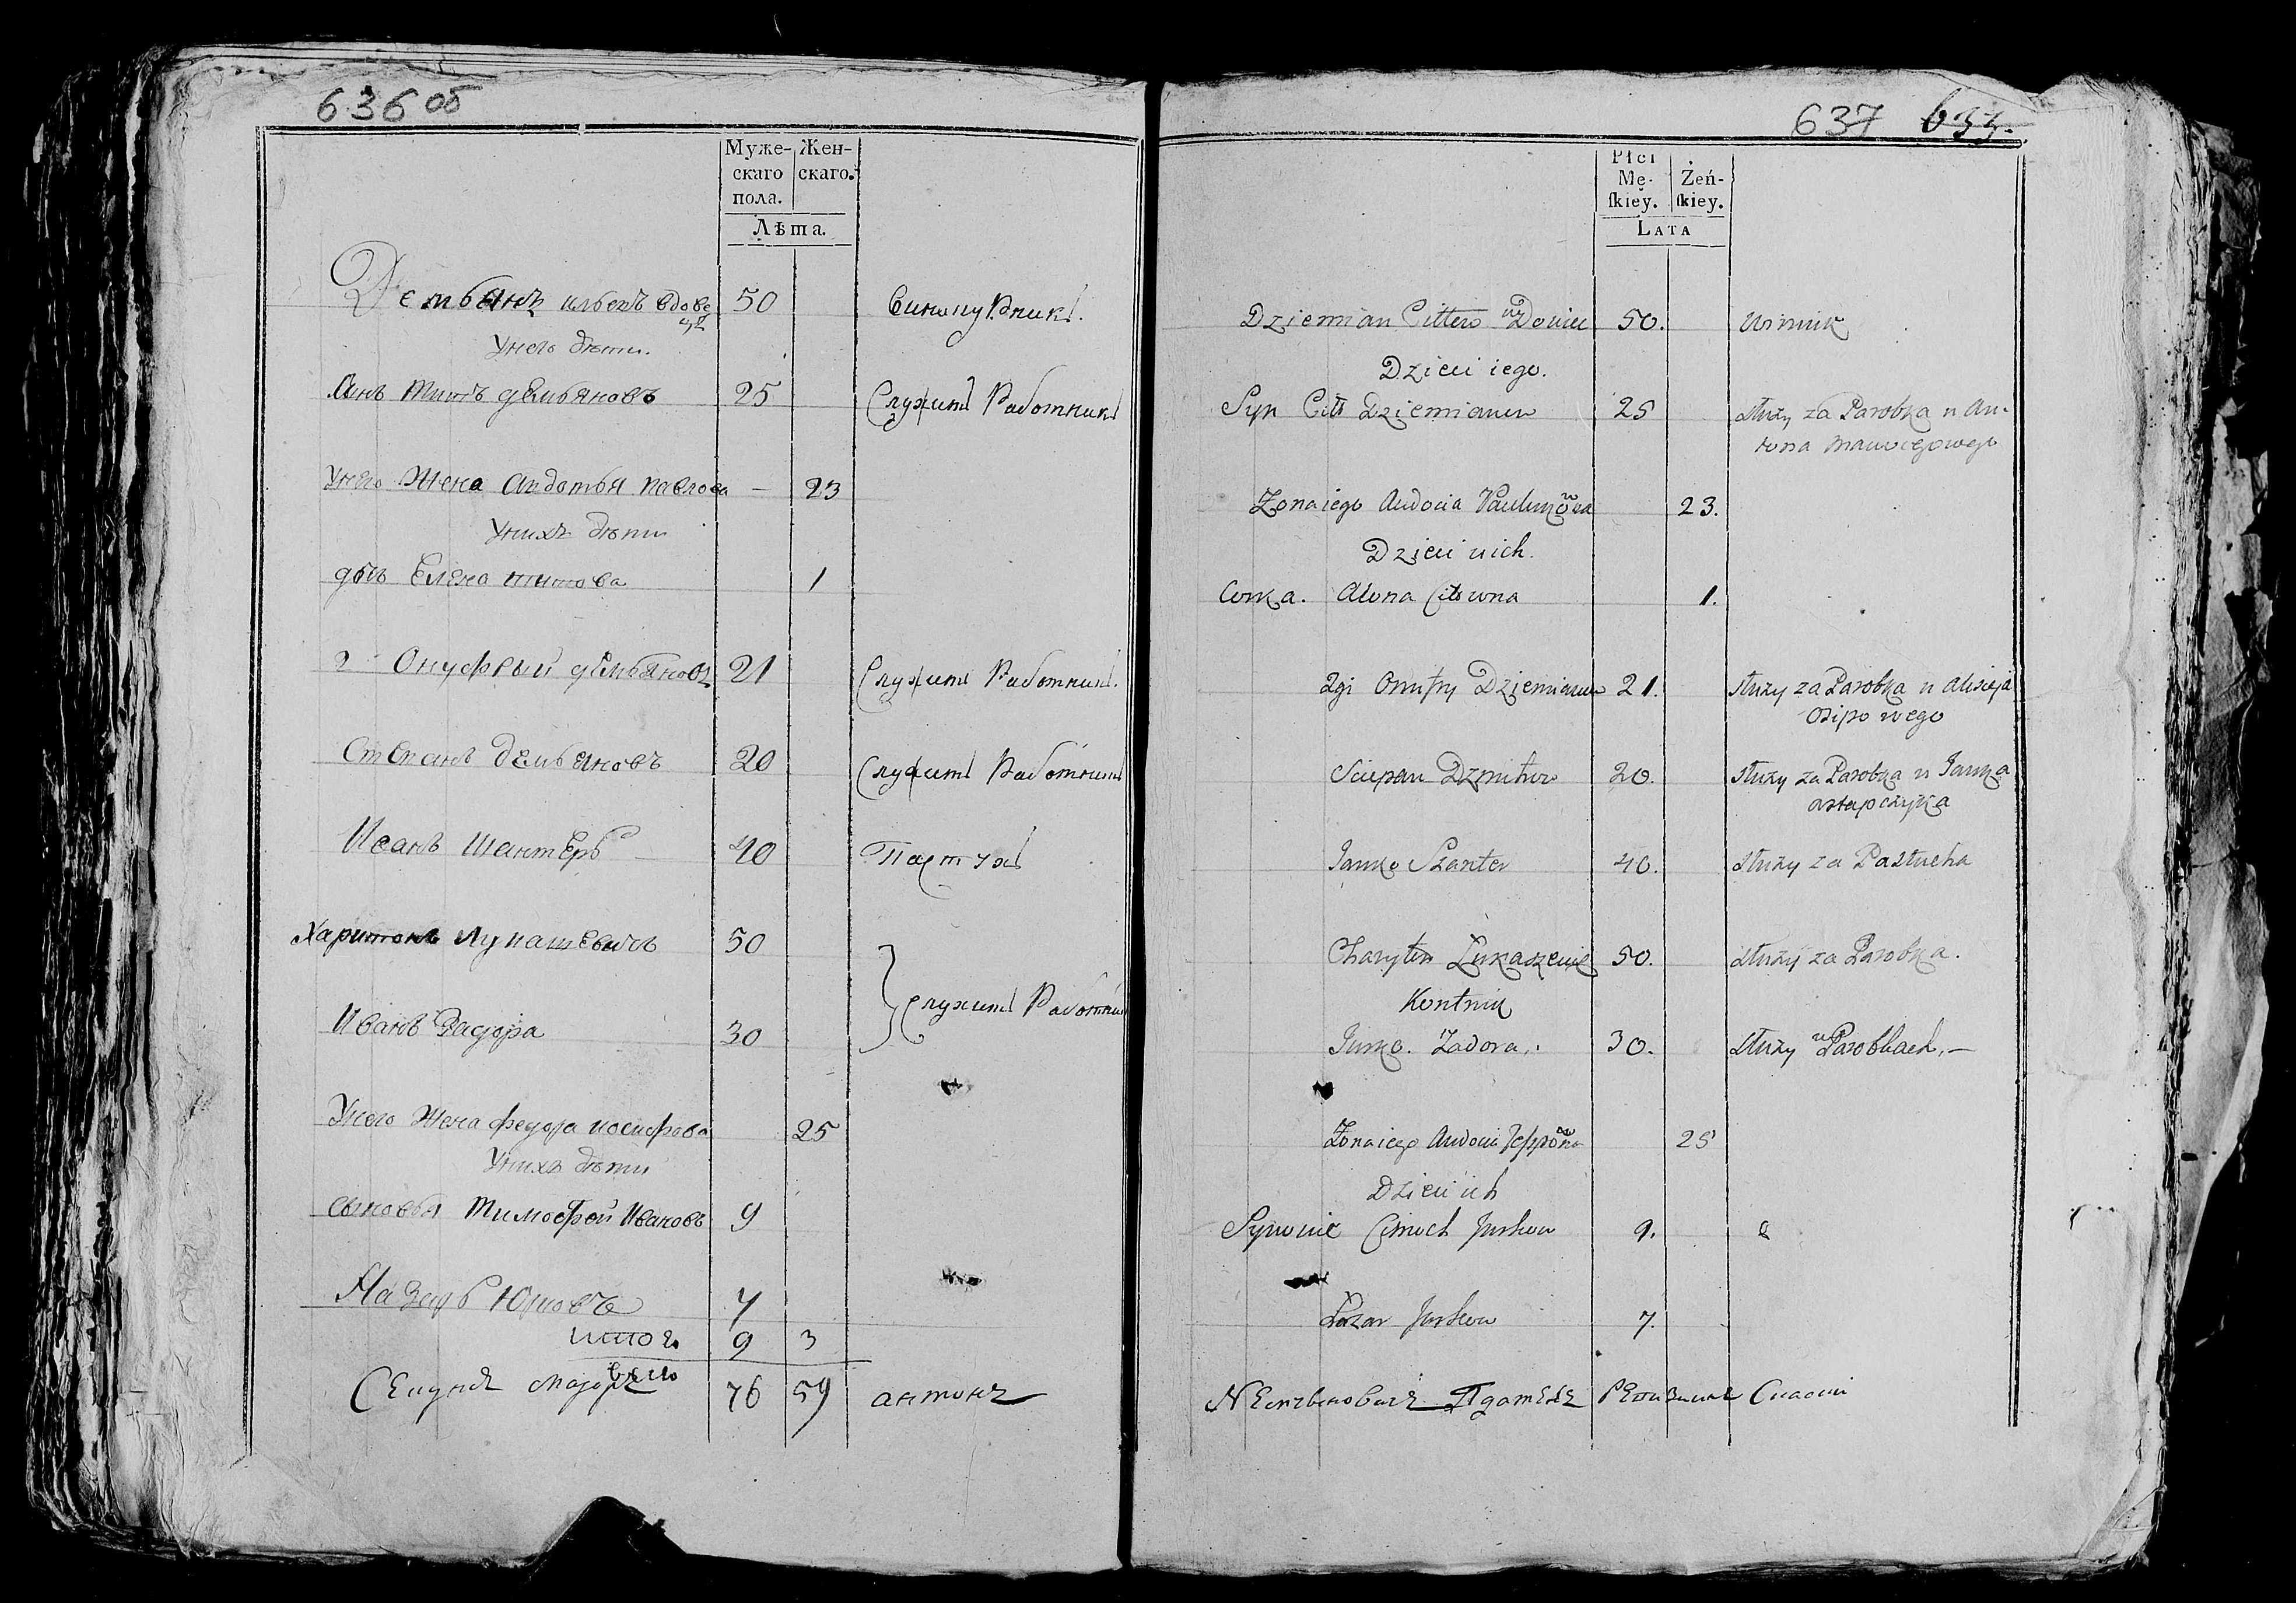 636 об
Муже- Жен-
скаго скаго.
пола.
Лѣта.
Демьянъ вдове 50
цъ
Унего дѣти.
Сынъ Титъ Демьяновъ 25 Служитъ Работникъ
Унего Жена Авдотья Павлова — 23
Унихъ дѣти
дочь Елена Титова 1
2 Онуфрый Демьяновъ 21 Служитъ Работник.
Степанъ Демьяновъ 20 Служитъ Работник
Иванъ Шантеръ 40 Пастухъ
Харитонъ Лукашевичъ 50
Служитъ Работник
Иванъ Задора 30
Унего Жена Федора Иосифова 25
Унихъ дѣти
Сыновья Тимофей Ивановъ 9
Лазарь Юрковъ 7
итого 9 3
всего
76 59 антонъ
637 633.
Płci
Mę- Żeń-
ſkiey. ſkiey.
LATA
Dziemian Cittow Dowiec 50. Winnik
Dzieci iego.
Syn Cit Dziemianow 25 służy za Parobka u An-
tona
Żona iego Audocia Paulukowna 23.
Dzieci uich.
Corka. Alona Citowna 1.
2gi Onufry Dziemianow 21. służy za Parobka u Alisieja
Osipowego
Sciepan Dzmitrow 20. służy za Parobka u Janka
Astapczyka
Janko Szanter 40. służy za Pastucha
Charyton Łukaszewic 50. służy za Parobka.
Kontnik
Jurko. Zadora. 30. służy w Parobkach. —
Żona iego Audocia 25
Dzieci ich
Synowie Cimoch Jurkow 9.
Łazar Jurkow 7.